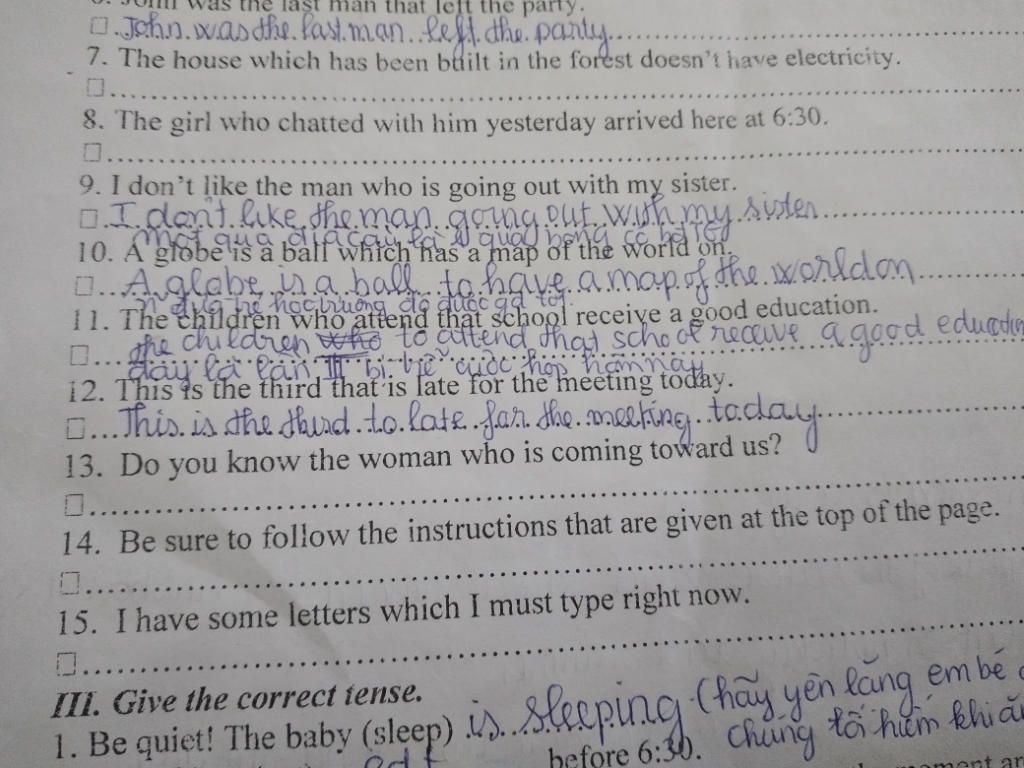 6. John was the last man that left the party.
John was the last man left the party
7. The house which has been built in the forest doesn't have electricity.
8. The girl who chatted with him yesterday arrived here at 6:30.
9. I don't like the man who is going out with my sister.
I don't like the man going out with my sister
một quả địa cầu là quả bóng có bản
10. A globe is a ball which has a map of the world on.
A globe is a ball to have a map of the world on
đứa trẻ học trường đó được gd tốt
11. The children who attend that school receive a good education.
the children to attend that school receive a good education
đây là lần III bị trễ cuộc họp hôm nay
12. This is the third that is late for the meeting today.
This is the third to late for the meeting today
13. Do you know the woman who is coming toward us?
14. Be sure to follow the instructions that are given at the top of the page.
15. I have some letters which I must type right now.
III. Give the correct tense.
1. Be quiet! The baby (sleep) is sleeping (hãy yên lặng em bé
before 6:30. chúng tôi hiếm khi